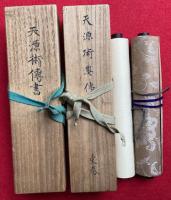 天源術傳書
天源術奥傳